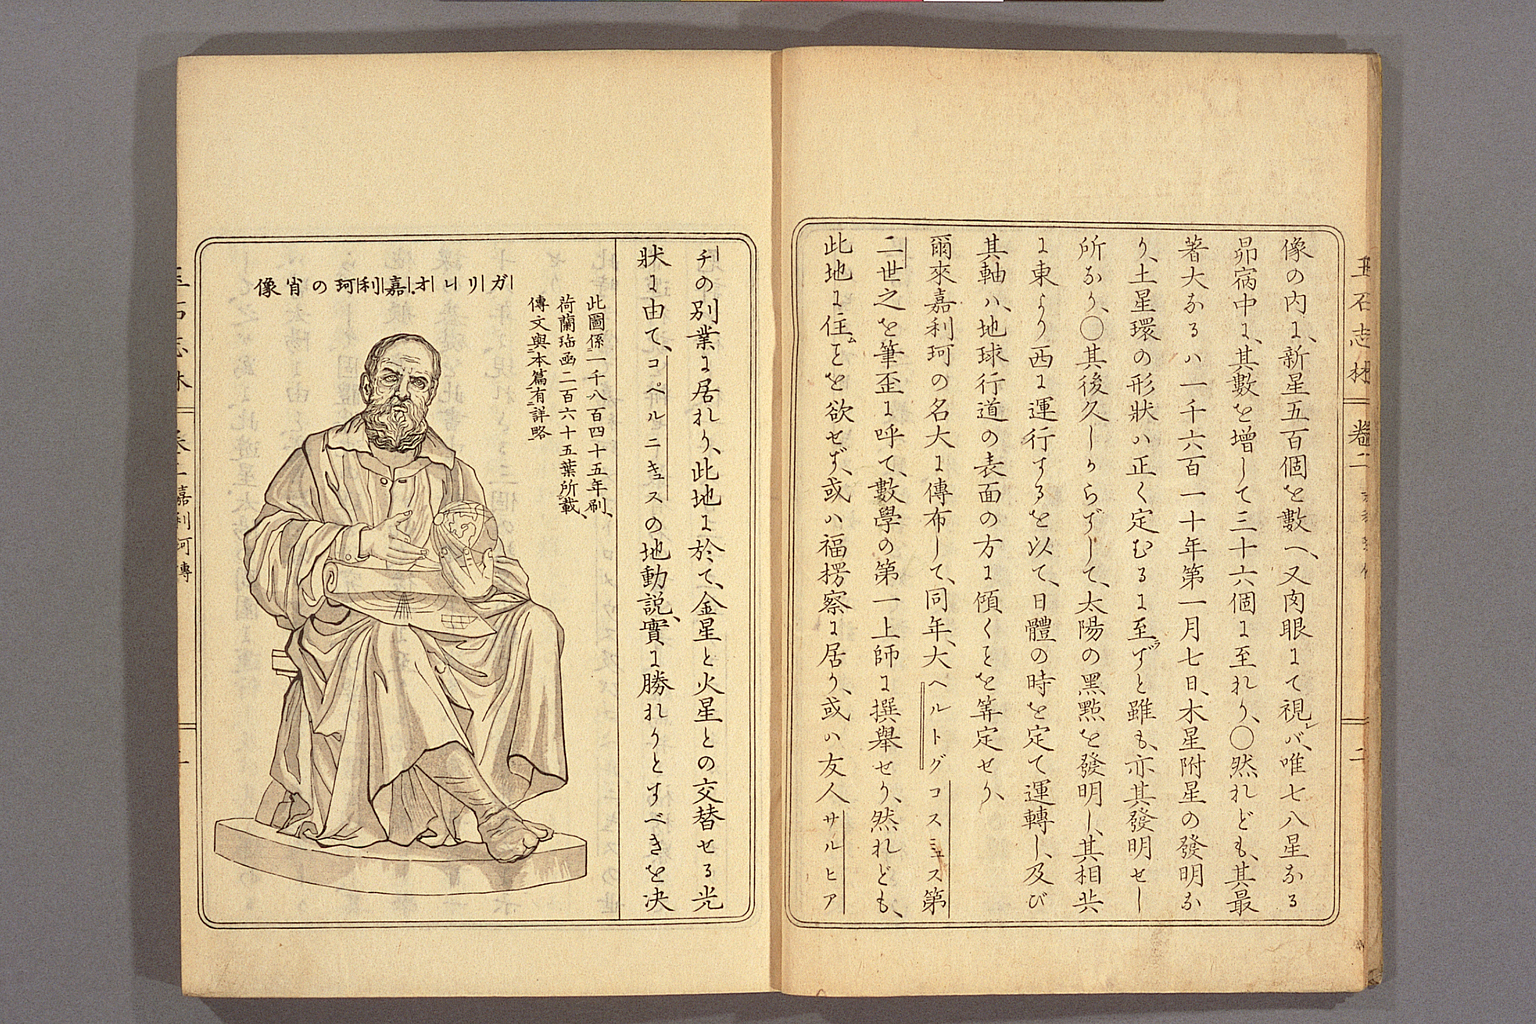 像の内に、新星五百個を數へ、又肉眼にて視レバ、唯七八星なる
昴宿中に、其數を増して三十六個に至れり、〇然れども、其最
著大なるハ一千六百一十年第一月七日、木星附星の發明な
り、土星環の形狀ハ正く定むるに至らずと雖も、亦其發明せし
所なり、〇其後久しからずして、太陽の黑點を發明し、其相共
に東より西に運行するを以て、日體の時を定て運轉し、及び
其軸ハ、地球行道の表面の方に傾くことを筭定せり、
爾來嘉利珂の名大に傳布して、同年、大ヘルトグコスミュス第
二世之を筆歪に呼て、數學の第一上師に撰擧せり、然れども、
此地に住むことを欲せず、或ハ福楞察に居り、或ハ友人サルヒア
玉石志林
卷二
二
チの別業に居れり、此地に於て、金星と火星との交替せる光
狀に由て、コペルニキュスの地動説、實に勝れりとすべきを決
ガリレオ嘉利珂の肖像
此圖係一千八百四十五年刷、
荷蘭玷函二百六十五葉所載、
傳文與本篇有詳略
嘉利珂傳